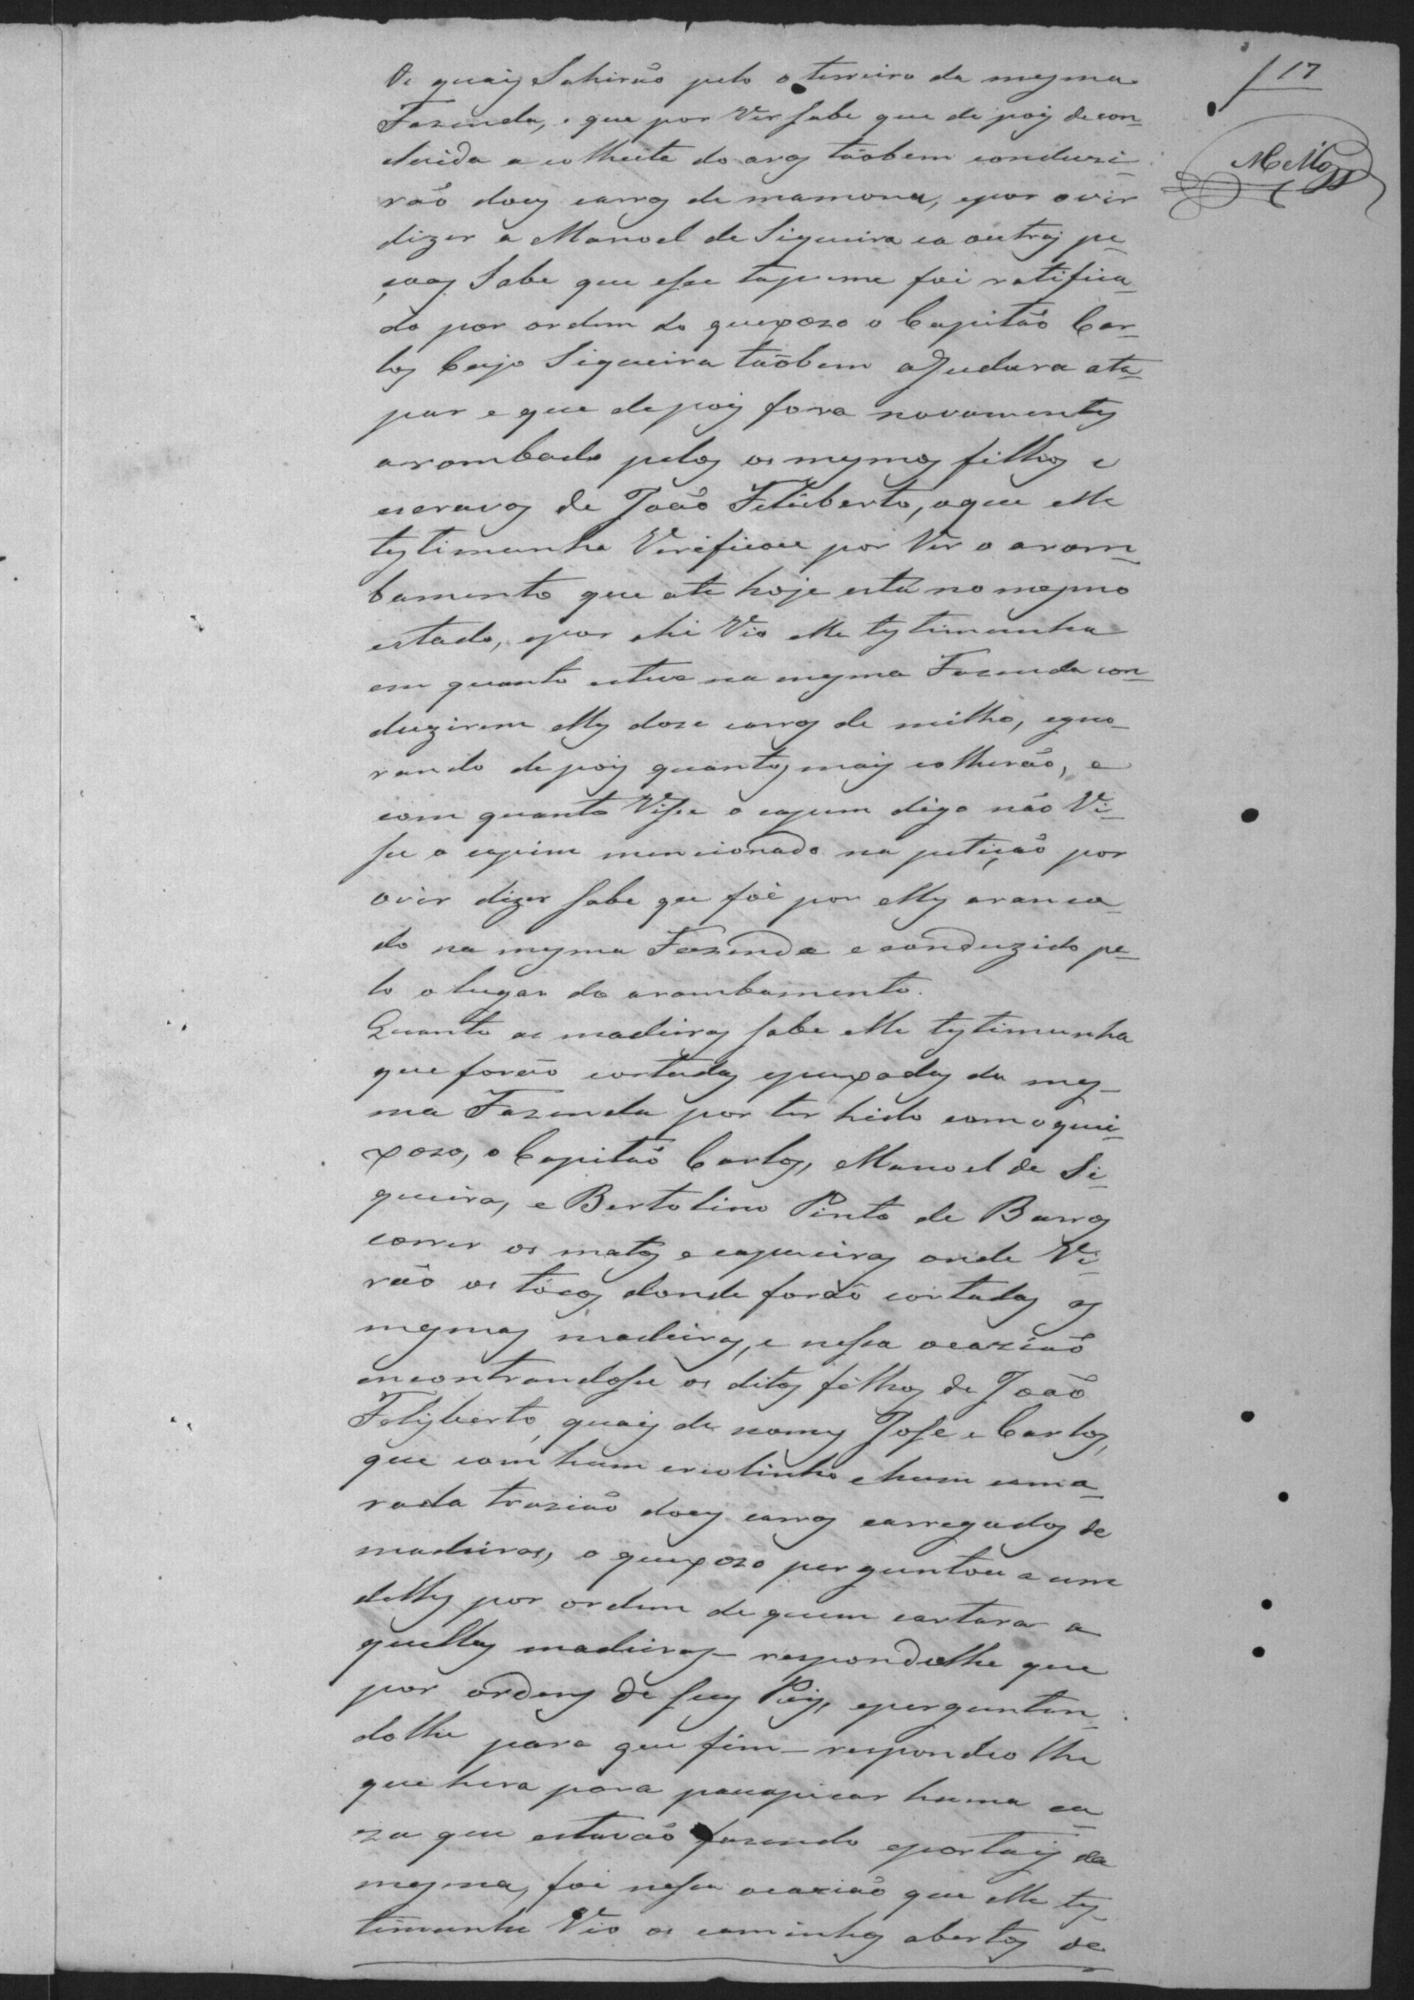 17
Mello
Os quais Sahirão pelo o terreiro da mesma
Fazenda, e que por Ver sabe que depois de con-
cluida a colheita do aros tãobem conduzi-
rão dois carros de mamona, epor ovir
dizer a Manoel de Siqueira ea outras pe-
ssoas Sabe que esse tapume foi ratifica-
do por ordem do queixozo o Capitão Car-
los Cujo Siqueira tãobem ajudara ata-
par e que depois fora novamentes
arombado pelos os mesmos filhos e
escravos de João Feliberto, oque elle
testimunha Verificou por Ver o arom-
bamento que ate hoje está no mesmo
estado, epor ahi Vio elle testimunha
em quanto esteve na mesma Fazenda con-
duzirem elles doze carros de milho, egno-
rando depois quantos mais colherão, e
com quanto Visse o capim digo não Vi-
sse o capim mencionado na petição por
ovir dizer sabe que foi por elles aranca-
do na mesma Fazenda e conduzido pe-
lo o lugar do arombamento.
Quanto as madeiras sabe elle testimunha
que forão cortadas epuxadas da mes-
ma Fazenda por ter hido com o quei-
xozo, o Capitão Carlos, Manoel de Si-
queira, e Bertolino Pinto de Barros
correr os matos e capueiras onde Vi-
rão os tócos donde forão cortadas as
mesmas madeiras, e nessa ocazião
encontrandosse os ditos filhos de João
Felisberto, quais de nomes José e Carlos,
que com hum criolinho ehum cama-
rada trazião dois carros carregados de
madeiras, o queixozo perguntou a um
delles por ordem de quem cortarar a
quellas madeiras - respondeolhe que
por ordens de seus Pais, eperguntan-
dolhe para que fim - respondeo lhe
que hera para paoapicar huma ca-
za que estavão fazendo eportais da
mesma, foi nessa ocazião que elle tes-
timunha Vio os caminhos abertos de